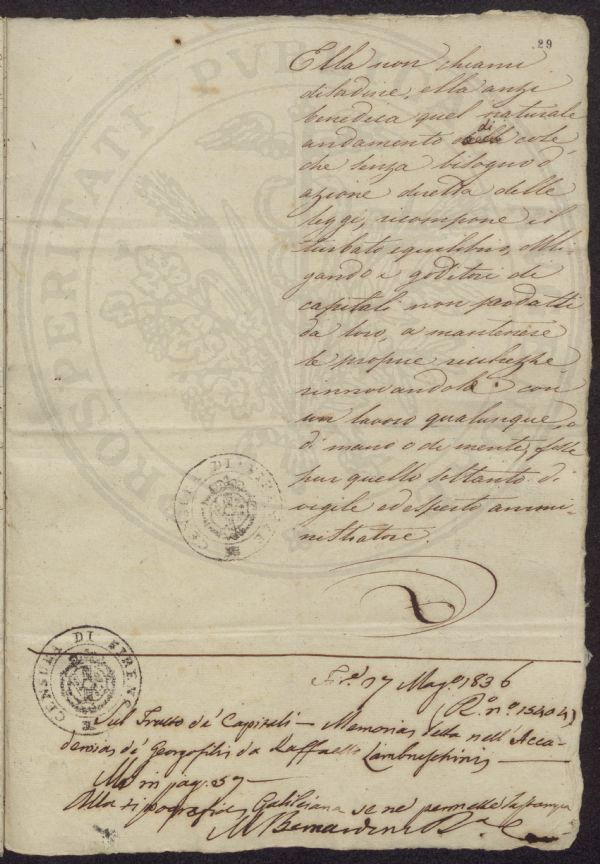 29
Ella non chiami
disadine, ella anzi
benedica quel naturale
andamento di cose,
che senza bisogno d'
azione diretta delle
leggi, ricompone il
turbato equilibrio, obbli-
gando i goditori di
capitali non prodotti
da loro, a mantenere
le proprie ricchezze
rinnovandole con
un lavoro qualunque, o
di mano o di mente, fosse
pur quello soltanto di
vigile ed esperto ammi-
nistratore.
CENSURA DI FIRENZE
CENSURA DI FIRENZE
17 Mag.o 1836
(R.o n.o 15404)
Sul Frutto de' Capitali — Memoria letta nell' Acca-
demia de' Georgofili da Raffaello Lambruschini —
in pag. 29 —
Alla tipografia Galileiana se ne permette la stampa
M Bernardini
PROSPERITATI PUBLICAE